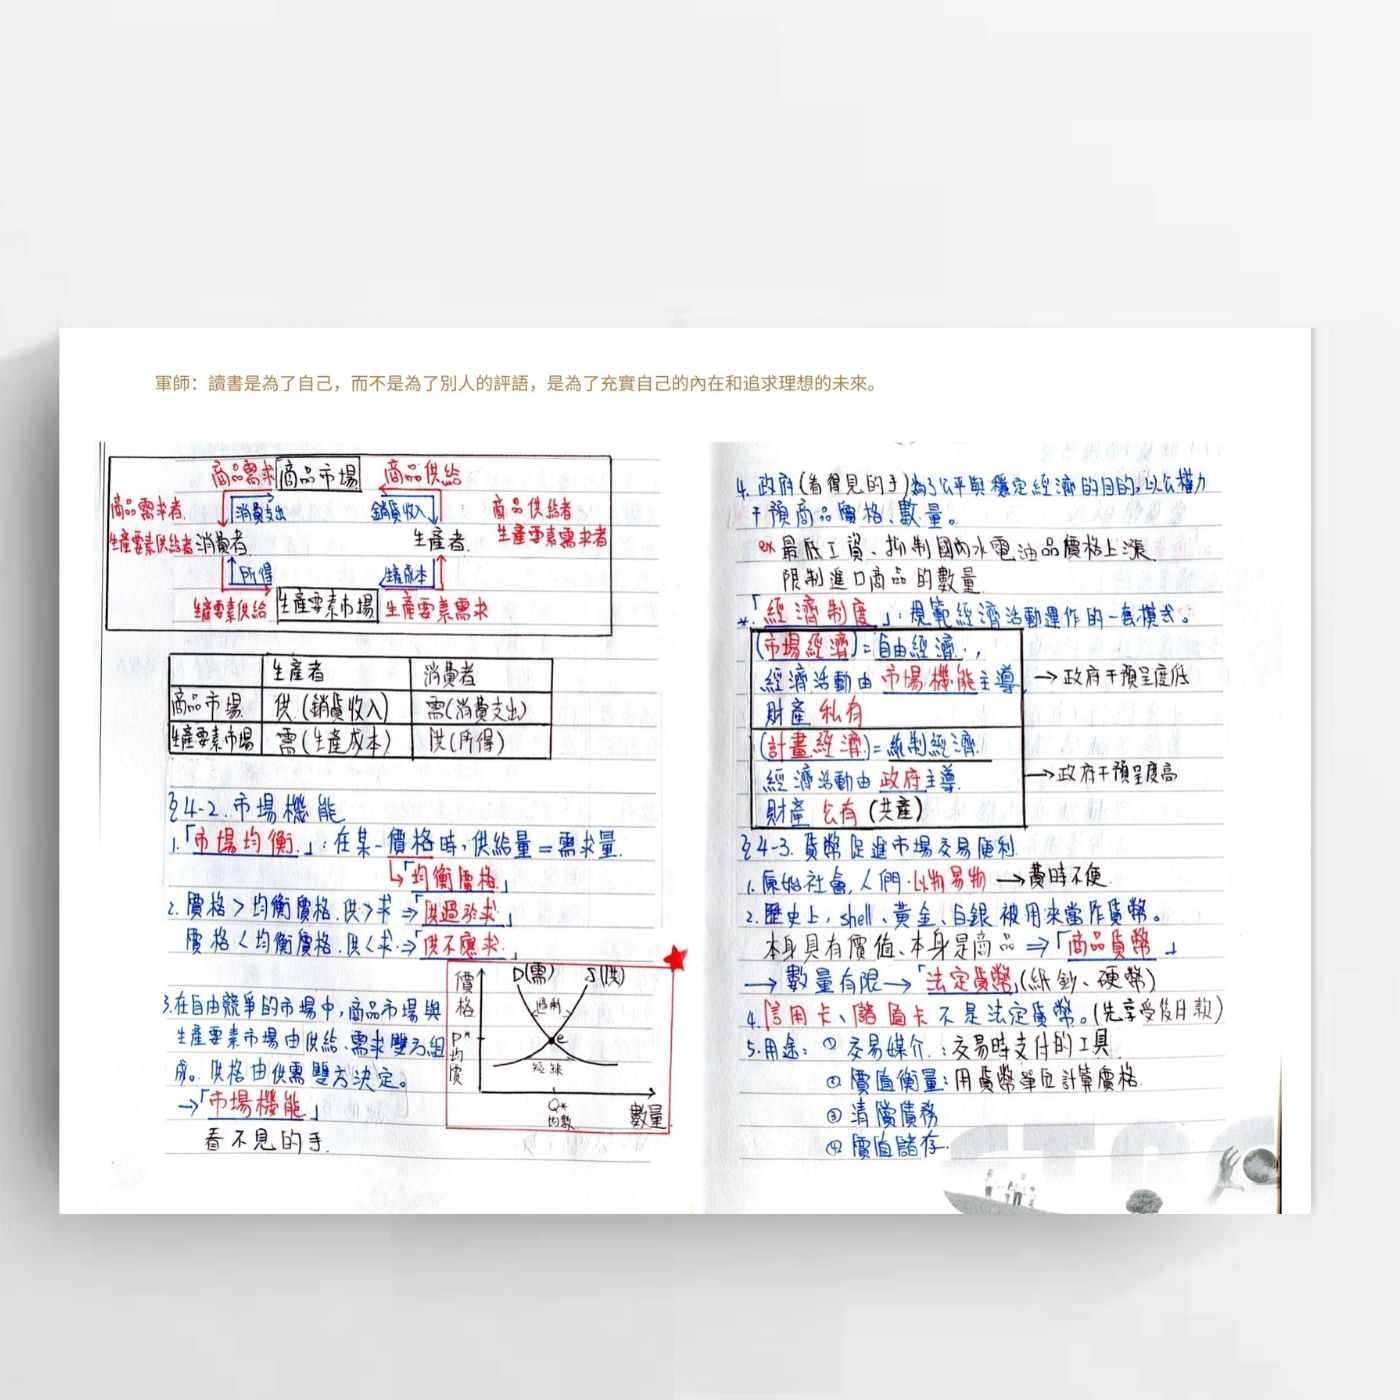 軍師：讀書是為了自己，而不是為了別人的評語，是為了充實自己的內在和追求理想的未來。
商品需求 商品市場 商品供給
商品需求者 消費支出 銷貨收入 商品供給者
生產要素供給者 消費者 生產者 生產要素需求者
所得 生產成本
生產要素供給 生產要素市場 生產要素需求
生產者 消費者
商品市場 供(銷貨收入) 需(消費支出)
生產要素市場 需(生產成本) 供(所得)
§4-2.市場機能
1.「市場均衡」：在某一價格時，供給量=需求量.
↳「均衡價格」
2.價格>均衡價格.供>求⇒「供過於求」
價格<均衡價格.供<求⇒「供不應求」
3.在自由競爭的市場中，商品市場與
生產要素市場由供給、需求雙方組
成。供格由供需雙方決定。
→「市場機能」
看不見的手.
價格 D(需) S(供)
過剩
P* 均價 e
短缺
Q* 數量
均數
4.政府(看得見的手)為了公平與穩定經濟的目的，以公權力
干預商品價格、數量。
ex 最低工資、抑制國內水電油品價格上漲
限制進口商品的數量
*.「經濟制度」：規範經濟活動運作的一套模式。
(市場經濟)=自由經濟
經濟活動由市場機能主導 →政府干預程度低
財產私有
(計畫經濟)=統制經濟
經濟活動由政府主導. →政府干預程度高
財產公有(共產)
§4-3.貨幣促進市場交易便利
1.原始社會,人們以物易物→費時不便
2.歷史上，shell、黃金、白銀被用來當作貨幣。
本身具有價值、本身是商品⇒「商品貨幣」
→數量有限→「法定貨幣」(紙鈔、硬幣)
4.信用卡、儲值卡不是法定貨幣。(先享受後付款)
5.用途：① 交易媒介：交易時支付的工具
② 價值衡量：用貨幣單位計算價格.
③ 清償債務
④ 價值儲存.